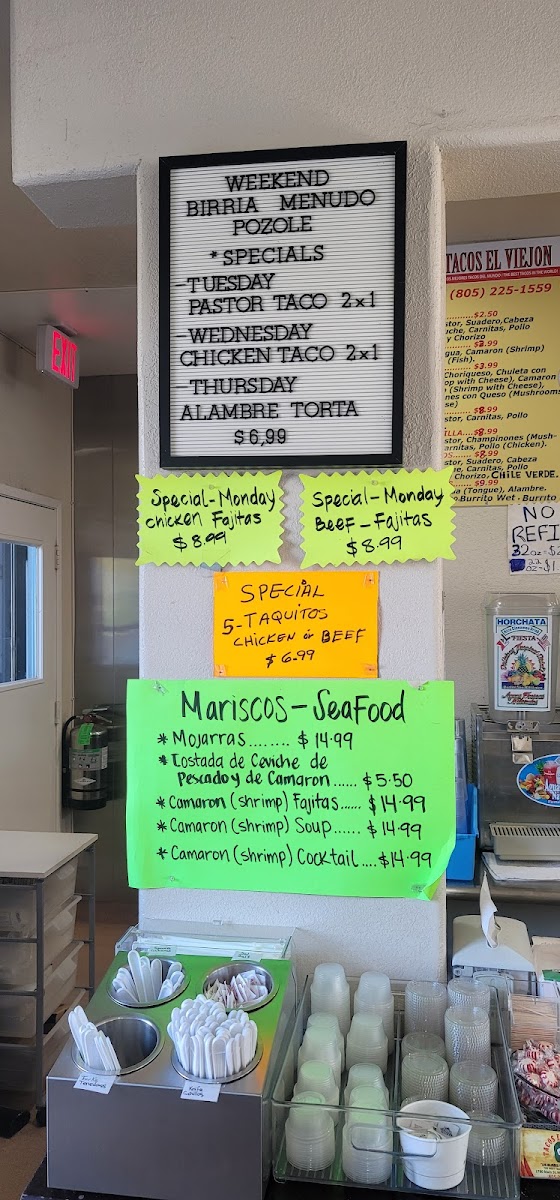 WEEKEND
BIRRIA MENUDO
POZOLE
*SPECIALS
-TUESDAY
PASTOR TACO 2x1
-WEDNESDAY
CHICKEN TACO 2x1
-THURSDAY
ALAMBRE TORTA
$6,99
EXIT
Special-Monday
chicken Fajitas
$8.99
Special-Monday
Beef-Fajitas
$8.99
SPECIAL
5-TAQUITOS
CHICKEN or BEEF
$6.99
Mariscos-SeaFood
*Mojarras........ $14.99
*Tostada de Ceviche de
Pescado y de Camaron...... $5.50
*Camaron (shrimp) Fajitas...... $14.99
*Camaron (shrimp) Soup...... $14.99
*Camaron (shrimp) Cocktail....$14.99
TACOS EL VIEJON
(805) 225-1559
$2.50
stor, Suadero, Cabeza
uche, Carnitas, Pollo
y Chorizo
$3.99
gua, Camaron (Shrimp)
(Fish).
$3.99
Choriqueso, Chuleta con
op with Cheese), Camaron
(Shrimp with Cheese),
nes con Queso (Mushrooms
se)
$8.99
stor, Carnitas, Pollo
ILLA....$8.99
stor, Champinones (Mush-
arnitas, Pollo (Chicken).
OS......$8.99
stor, Suadero, Cabeza
he, Carnitas, Pollo
Chorizo, CHILE VERDE.
$9.99
a (Tongue), Alambre.
Burrito Wet - Burrito
NO
REFI
32oz-$
22
oz-$1.
HORCHATA
FIESTA